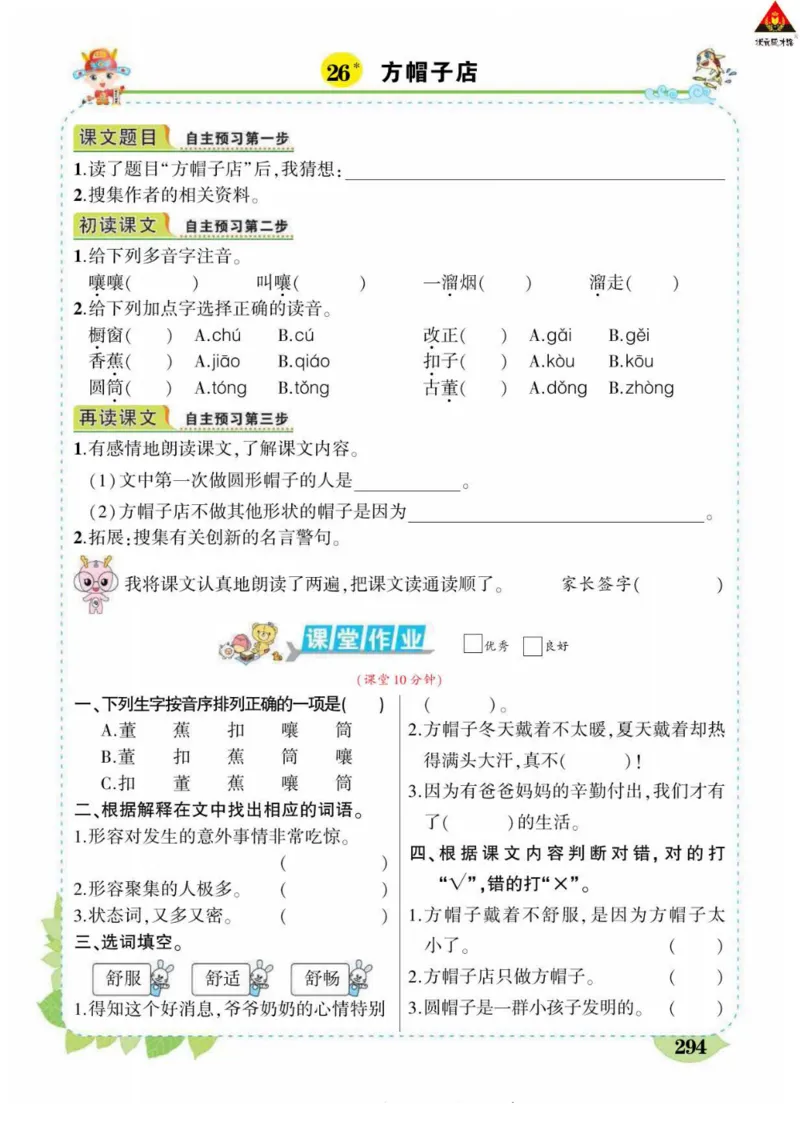 状元成才路
26* 方帽子店
课文题目 自主预习第一步
1.读了题目“方帽子店”后,我猜想:
2.搜集作者的相关资料。
初读课文 自主预习第二步
1.给下列多音字注音。
嚷嚷( ) 叫嚷( ) 一溜烟( ) 溜走( )
2.给下列加点字选择正确的读音。
橱窗( ) A.chú B.cú 改正( ) A.gǎi B.gěi
香蕉( ) A.jiāo B.qiáo 扣子( ) A.kòu B.kōu
圆筒( ) A.tóng B.tǒng 古董( ) A.dǒng B.zhòng
再读课文 自主预习第三步
1.有感情地朗读课文,了解课文内容。
(1)文中第一次做圆形帽子的人是 。
(2)方帽子店不做其他形状的帽子是因为 。
2.拓展:搜集有关创新的名言警句。
我将课文认真地朗读了两遍,把课文读通读顺了。 家长签字( )
课堂作业 优秀 良好
(课堂10分钟)
一、下列生字按音序排列正确的一项是( )
A.董 蕉 扣 嚷 筒
B.董 扣 蕉 筒 嚷
C.扣 董 蕉 嚷 筒
二、根据解释在文中找出相应的词语。
1.形容对发生的意外事情非常吃惊。
( )
2.形容聚集的人极多。 ( )
3.状态词,又多又密。 ( )
三、选词填空。
舒服 舒适 舒畅
1.得知这个好消息,爷爷奶奶的心情特别
( )。
2.方帽子冬天戴着不太暖,夏天戴着却热
得满头大汗,真不( )!
3.因为有爸爸妈妈的辛勤付出,我们才有
了( )的生活。
四、根据课文内容判断对错,对的打
“√”,错的打“×”。
1.方帽子戴着不舒服,是因为方帽子太
小了。 ( )
2.方帽子店只做方帽子。 ( )
3.圆帽子是一群小孩子发明的。 ( )
294